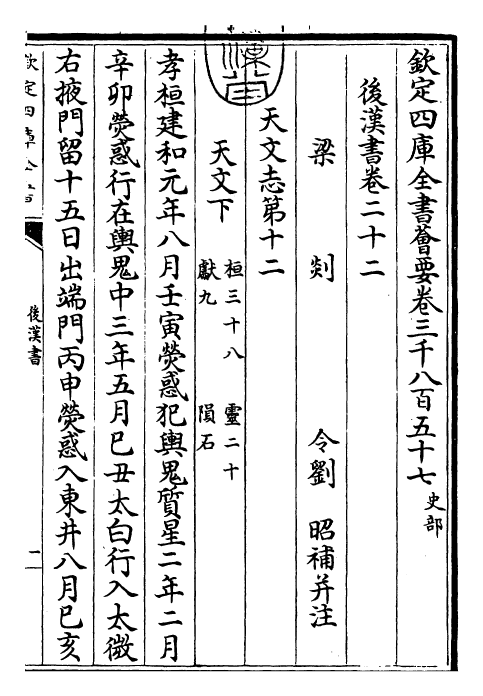 欽定四庫全書薈要卷三千八百五十七 史部
後漢書卷二十二
梁 剡 令劉 昭補并注
天文志第十二
天文下 桓三十八 靈二十 獻九 隕石
孝桓建和元年八月壬寅熒惑犯輿鬼質星二年二月
辛卯熒惑行在輿鬼中三年五月己丑太白行入太微
右掖門留十五日出端門丙申熒惑入東井八月己亥
欽定四庫全書
後漢書
一